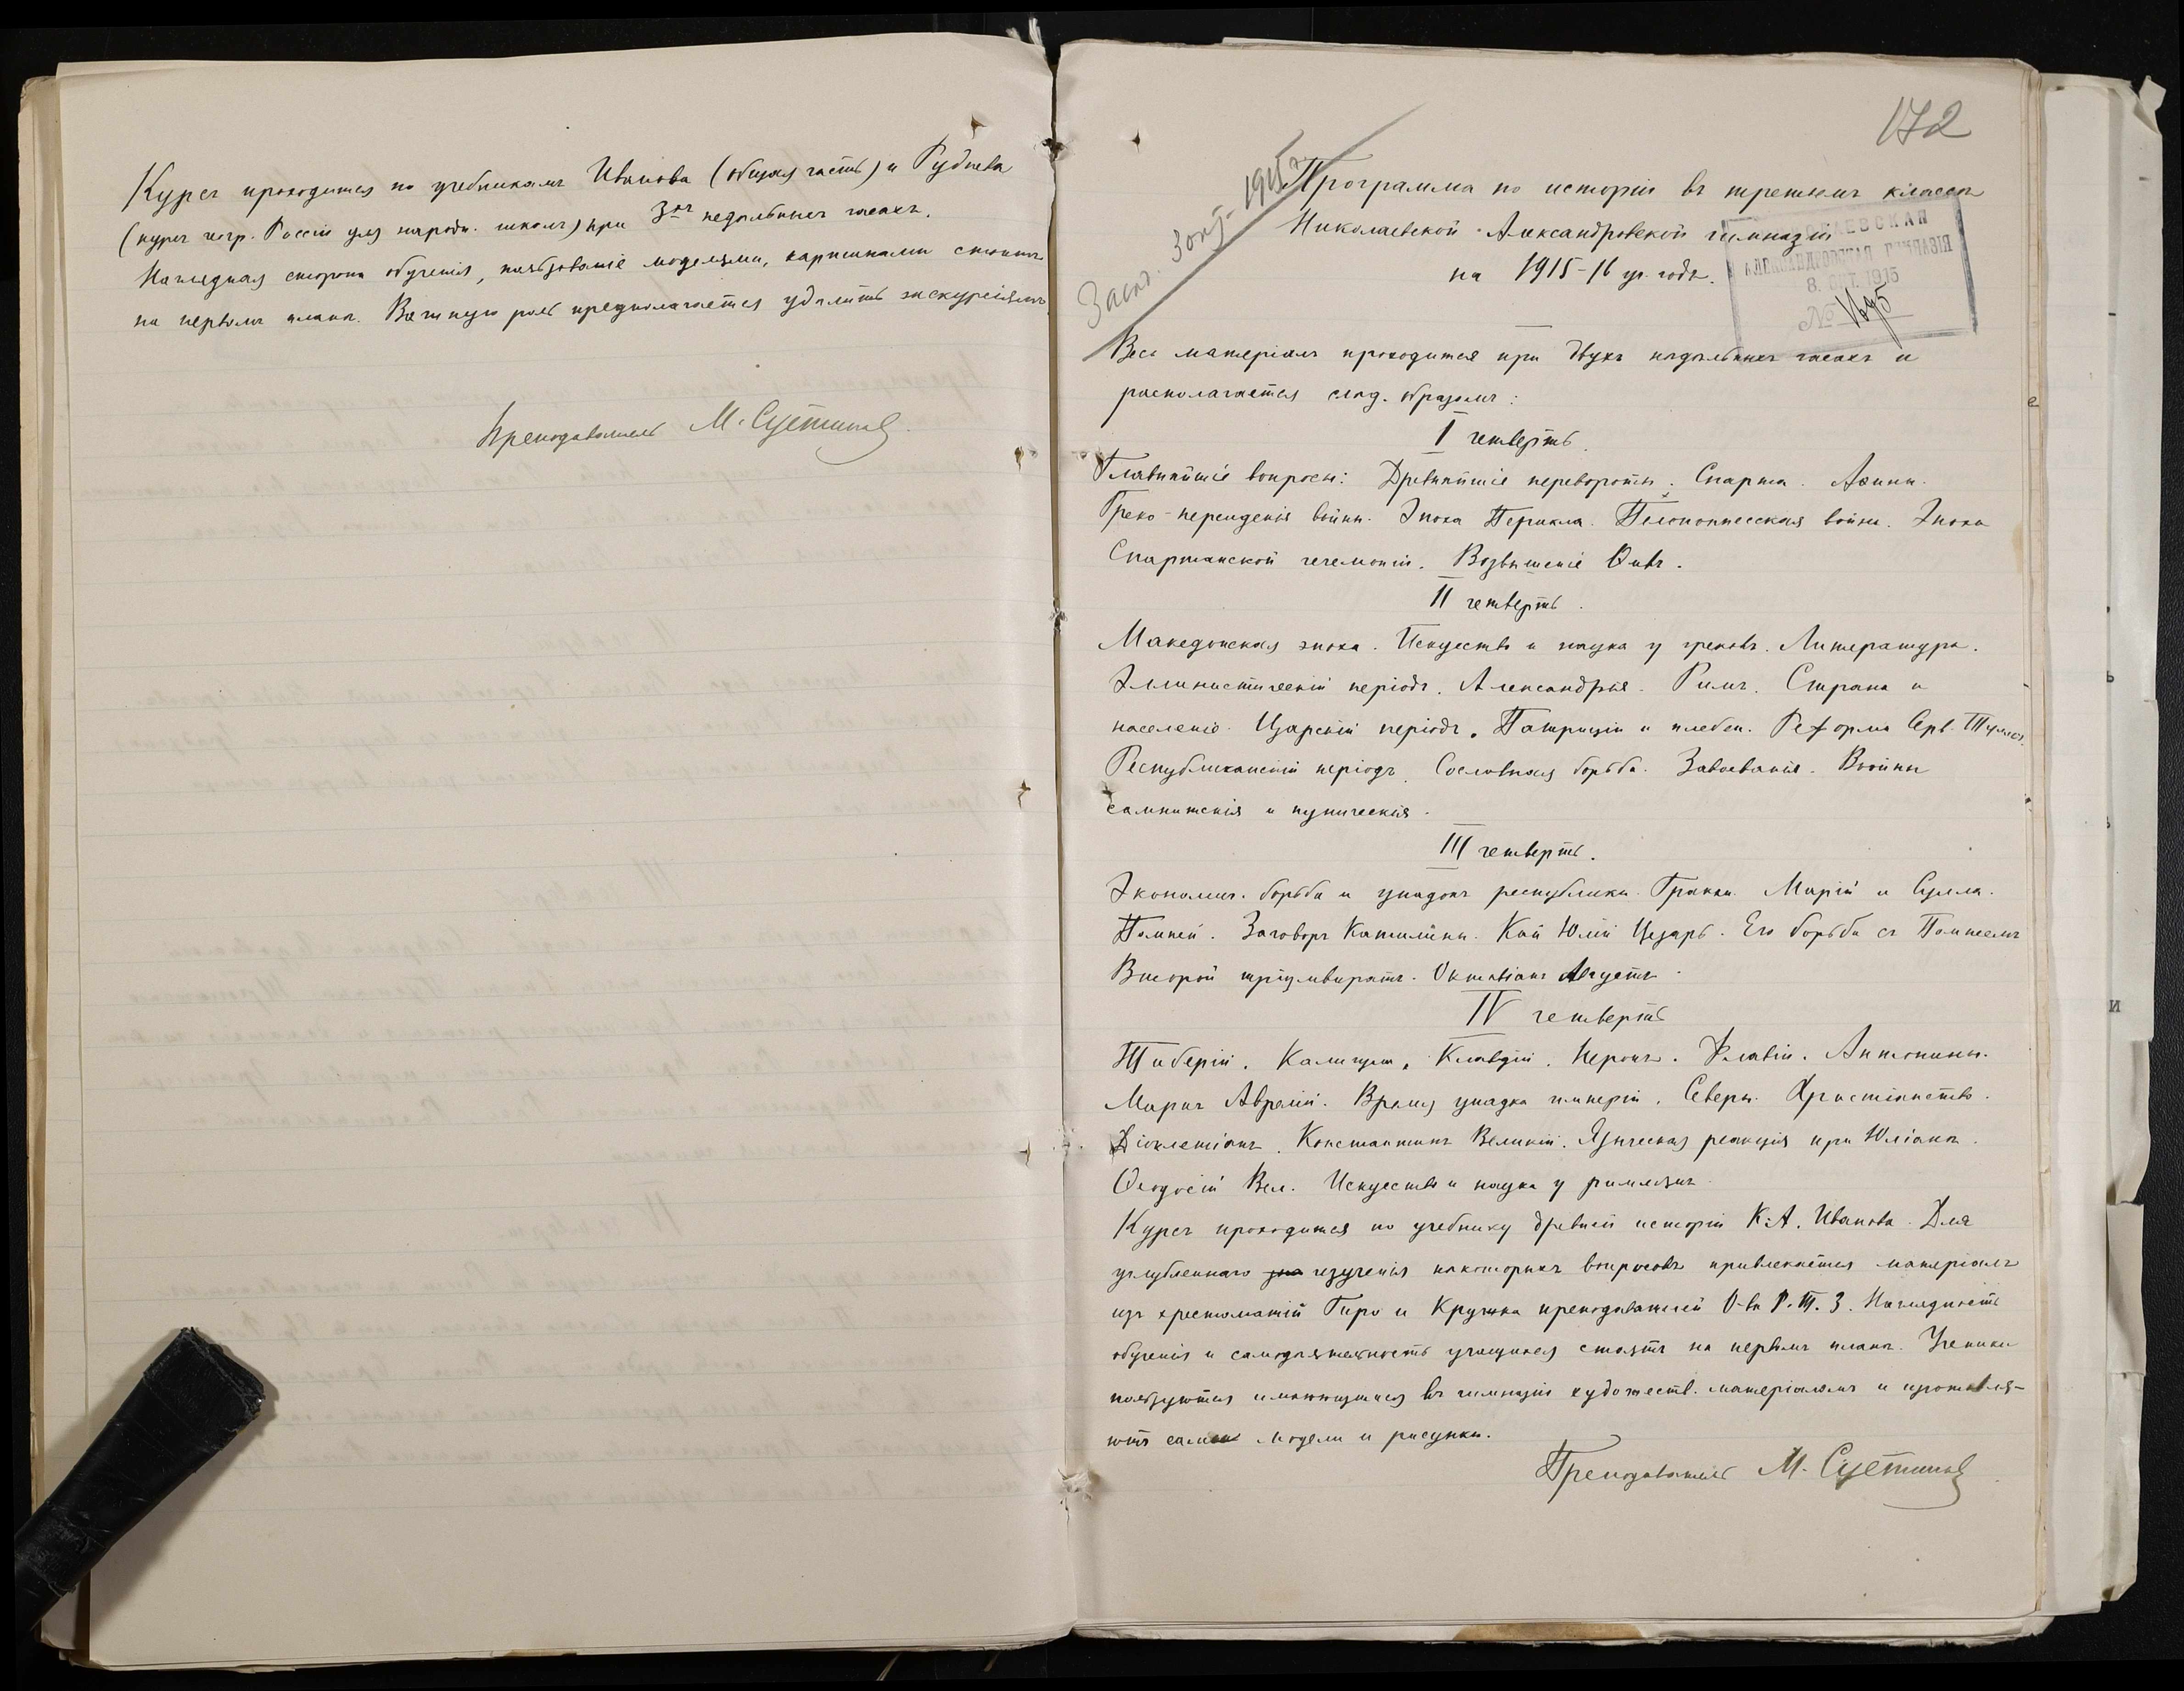 Курсъ проходится по учебникамъ Иванова (общая часть) и Руднева
(курсъ геогр. Россіи для народн. школъ) при 3-хъ недѣльныхъ часахъ.
Наглядная сторона обученія, пользованіе моделями, картинками стоитъ
на первомъ планѣ. Важную роль предполагается удѣлить экскурсіямъ
Преподаватель М. Сцѣтинов
172
Засѣд. 3 окт. 1915 г.
Программа по исторіи въ третьемъ классѣ
Николаевской Александровской гимназіи
на 1915-16 уч. годъ.
НИКОЛАЕВСКАЯ
АЛЕКСАНДРОВСКАЯ ГИМНАЗІЯ
8. ОКТ. 1915
№ 1695
Весь матеріалъ проходится при двухъ недѣльныхъ часахъ и
располагается слѣд. образомъ:
I четверть.
Главнѣйшіе вопросы: Древнѣйшіе перевороты. Спарта. Аѳины.
Греко-персидскія войны. Эпоха Перикла. Пелопоннесская война. Эпоха
Спартанской гегемоніи. Возвышеніе Ѳивъ.
II четверть.
Македонская эпоха. Искусство и наука у грековъ. Литература.
Эллинистическій періодъ. Александрія. Римъ. Страна и
населеніе. Царскій періодъ. Патриціи и плебеи. Реформа Серв. Туллія.
Республиканскій періодъ. Сословная борьба. Завоеванія. Войны
самнитскія и пуническія.
III четверть.
Экономич. борьба и упадокъ республики. Гракхи. Марій и Сулла.
Помпей. Заговоръ Катилины. Кай Юлій Цезарь. Его борьба съ Помпеемъ
Второй тріумвиратъ. Октавіанъ Августъ.
IV четверть
Тиберій. Калигула. Клавдій. Неронъ. Флавіи. Антонины.
Маркъ Аврелій. Время упадка имперіи. Северы. Христіанство.
Діоклетіанъ. Константинъ Великій. Языческая реакція при Юліанѣ.
Ѳеодосій Вел. Искусство и наука у римлянъ.
Курсъ проходится по учебнику древней исторіи К.А. Иванова. Для
углубленнаго изученія нѣкоторыхъ вопросовъ привлекается матеріалъ
изъ хрестоматій Гиро и Кружка преподавателей О-ва Р. Т. З. Наглядность
обученія и самодѣятельность учащихся стоятъ на первомъ планѣ. Ученики
пользуются имѣющимся въ гимназіи художеств. матеріаломъ и изготовля-
ютъ сами модели и рисунки.
Преподаватель М. Сцѣтинов